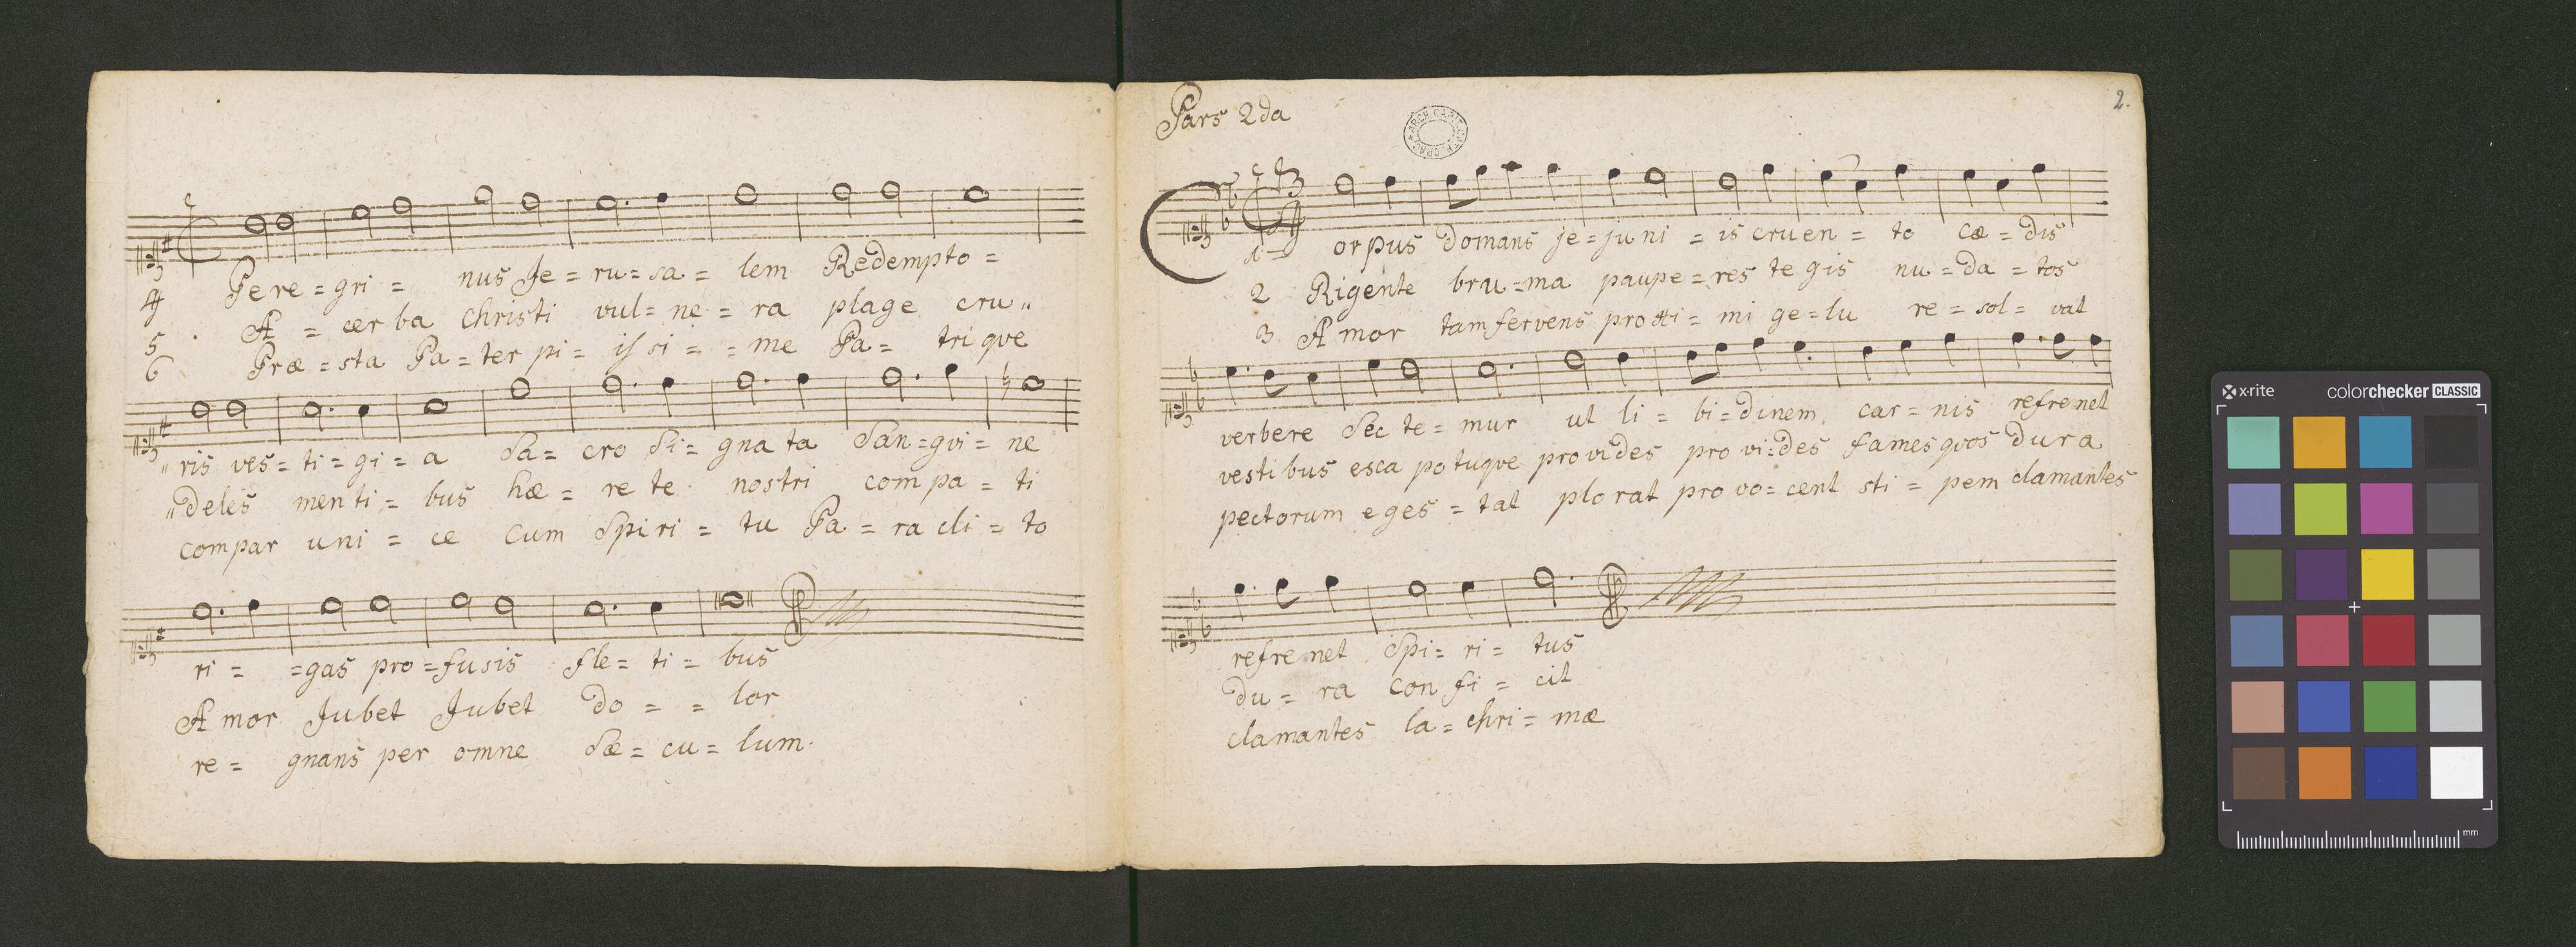 4 Pere=gri= nus Je=ru=sa= lem Redempto=
5 A = cer ba Christi vul=ne=ra plage cru"
6 Præ=sta Pa=ter pi= issi= =me Pa= tri qve
"ris ves=ti=gi=a Sa= cro Si= gna ta San=gvi=ne
"deles menti= bus hæ= re te nostri com pa= ti
compar uni= ce cum Spiri= tu Pa= ra cli= to
ri= =gas pro=fusis fle= ti= bus
Amor Jubet Jubet do= = lor
re= gnans per omne Sæ= cu= lum.
Pars 2da
2.
ARCH. CAPIT. CATH. CRAC.
C
3
4
1. orpus domans je=ju ni= is cru en= to cæ= dis
2 Rigente bru=ma paupe=res te gis nu=da=tos
3 Amor tam fervens proxi= mi ge=lu re=sol= vat
verbere Sec te= mur ut li= bi=dinem car=nis refrenet
vestibus esca potuqve provides pro vi=des fames qvos dura
pectorum eges=tat plorat pro vo=cent sti= pem clamantes
refrenet Spi= ri= tus
du= ra con fi= cit
clamantes la=chri=mæ
x-rite colorchecker CLASSIC
mm